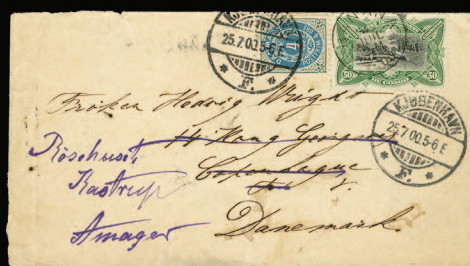 KJØBENHAVN
25.7.00.5-6 E
F.
50 50
KJØBENHAVN
25.7.00.5-6 E
F.
Fröken Hedvig Wright
Copenhague
Danemark
Rösehuset
Kastrup
Amager